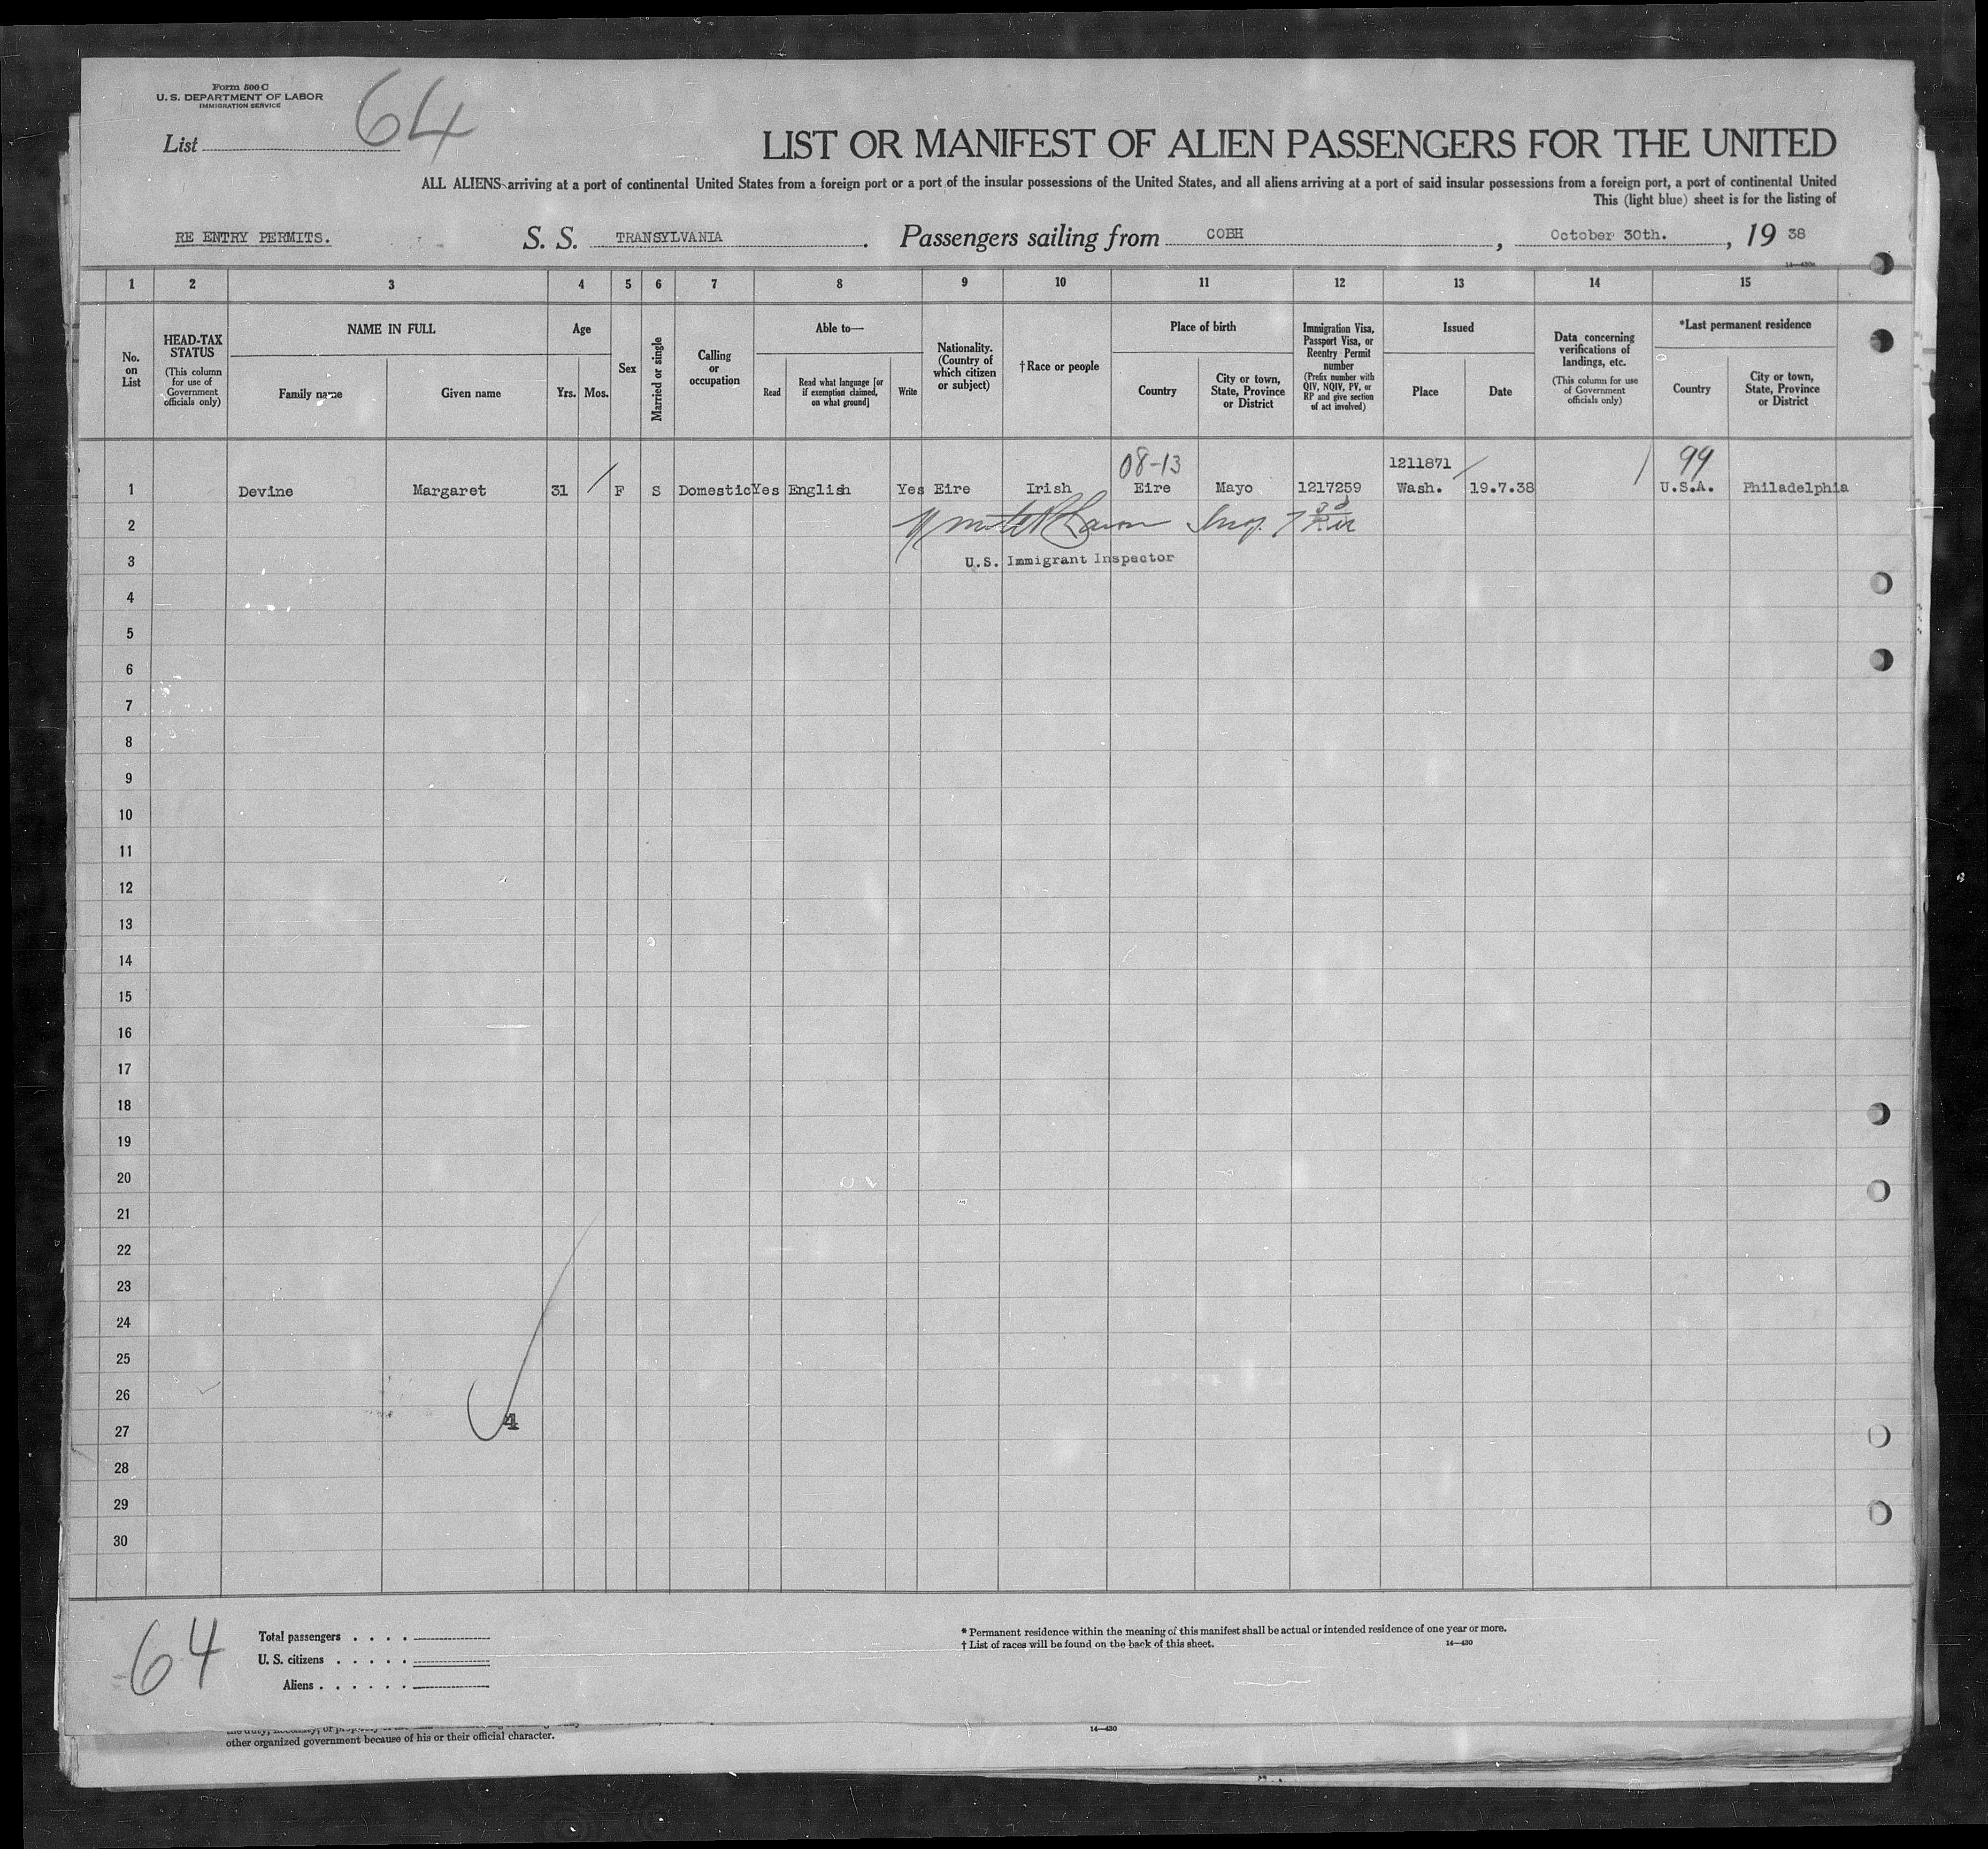 Form 500 C
U. S. DEPARTMENT OF LABOR
IMMIGRATION SERVICE
64
List
LIST OR MANIFEST OF ALIEN PASSENGERS FOR THE UNITED
ALL ALIENS arriving at a port of continental United States from a foreign port or a port of the insular possessions of the United States, and all aliens arriving at a port of said insular possessions from a foreign port, a port of continental United
This (light blue) sheet is for the listing of
RE ENTRY PERMITS. S. S. TRANSYLVANIA. Passengers sailing from COBH, October 30th., 19 38
14—430a
1 2 3 4 5 6 7 8 9 10 11 12 13 14 15
No. on List
HEAD-TAX STATUS
(This column for use of Government officials only)
NAME IN FULL
Family name
Given name
Age
Yrs.
Mos.
Sex
Married or single
Calling or occupation
Able to—
Read
Read what language [or if exemption claimed, on what ground]
Write
Nationality. (Country of which citizen or subject)
†Race or people
Place of birth
Country
City or town, State, Province or District
Immigration Visa, Passport Visa, or Reentry Permit number
(Prefix number with QIV, NQIV, PV, or RP and give section of act involved)
Issued
Place
Date
Data concerning verifications of landings, etc.
(This column for use of Government officials only)
*Last permanent residence
Country
City or town, State, Province or District
08-13 1211871 99
1 Devine Margaret 31 F S Domestic Yes English Yes Eire Irish Eire Mayo 1217259 Wash. 19.7.38 U.S.A. Philadelphia
2
3 U.S. Immigrant Inspector
4
5
6
7
8
9
10
11
12
13
14
15
16
17
18
19
20
21
22
23
24
25
26
4
27
28
29
30
64
Total passengers . . . .
U. S. citizens . . . . .
Aliens . . . . . .
* Permanent residence within the meaning of this manifest shall be actual or intended residence of one year or more.
† List of races will be found on the back of this sheet.
14—430
14—430
other organized government because of his or their official character.